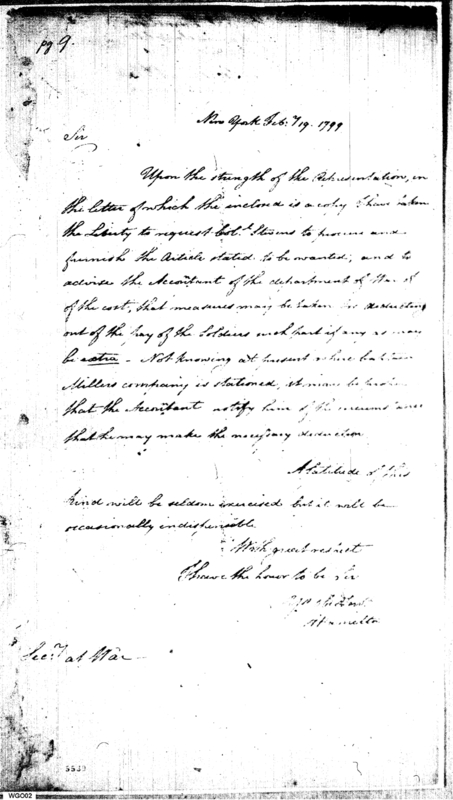 pg 9.
New York Feby 19. 1799
Sir
Upon the strength of the Representation, in
the letter of which the enclosed is a copy I have taken
the Liberty to request Col. Stevens to procure and
furnish the Article stated to be wanted, and to
advise the Accountant of the department of War
of the cost, that measures may be taken for deducting
out of the pay of the Soldiers such part if any as may
be extra - Not knowing at present where Captain
Millers company is stationed, it may be
that the Accountant notify him of the circumstance
that he may make the necessary deduction
A latitude of this
kind will be seldom exercised but it will be
occasionally indispensible.
With great respect
I have the honor to be Sir
Hamilton
Secy at War
5539
WGO02